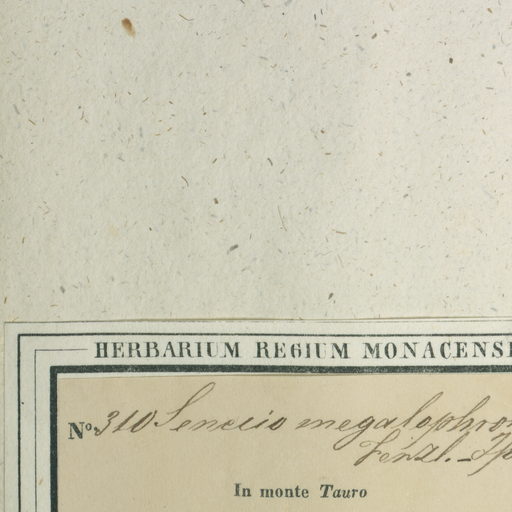 HERBARIUM REGIUM MONACENSE
No. 310 Senecio megalophron
Fenzl. _ Sp
In monte Tauro